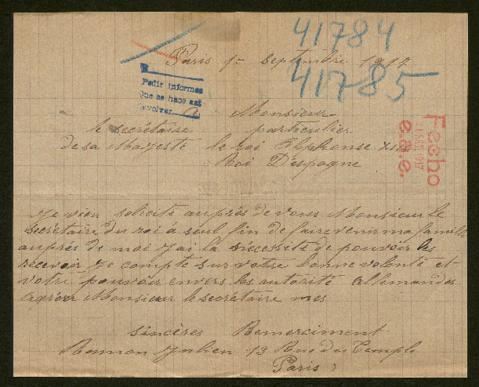 41784
41785
Paris 1er Septembre 1917
Pedir informes
Que se hace est
Fecho
e.a.e.
A Monsieur
le secrétaire particulier
de sa Majesté le roi Alphonse XIII
Roi D'espagne
Je vien solicité auprès de vous Monsieur le
secrétaire du roi a seul fin de faire venir ma famille
auprès de moi J'ai la nécessité de pouvoir les
recevoir Je compte sur votre bonne volonté et
votre pouvoir envers les autorité allemandes
agréer Monsieur le secrétaire mes
sincères Remerciment
Ramon Julien 13 Rue du Temple
Paris